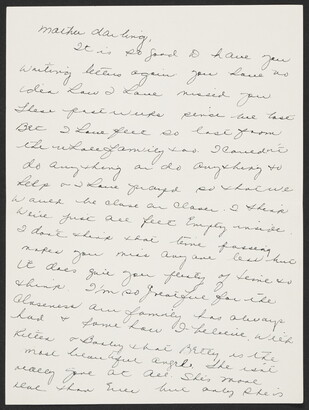 Mother darling,
It is so good to have you
writing letters again you have no
idea how I have missed you
these past weeks since we lost
Bet I have felt so lost from
the whole family too. I couldn't
do anything or do anything to
help & I have prayed so that we
would be close or closer. I think
we've just all felt empty inside.
I don't think that time passing
makes you miss anyone less but
it does give you plenty of time to
think I'm so grateful for the
closeness our family has always
had & some how I believe with
& Bobby that Betty is the
most beautiful angel. She isn't
really gone at all She's more
real than ever but only she's